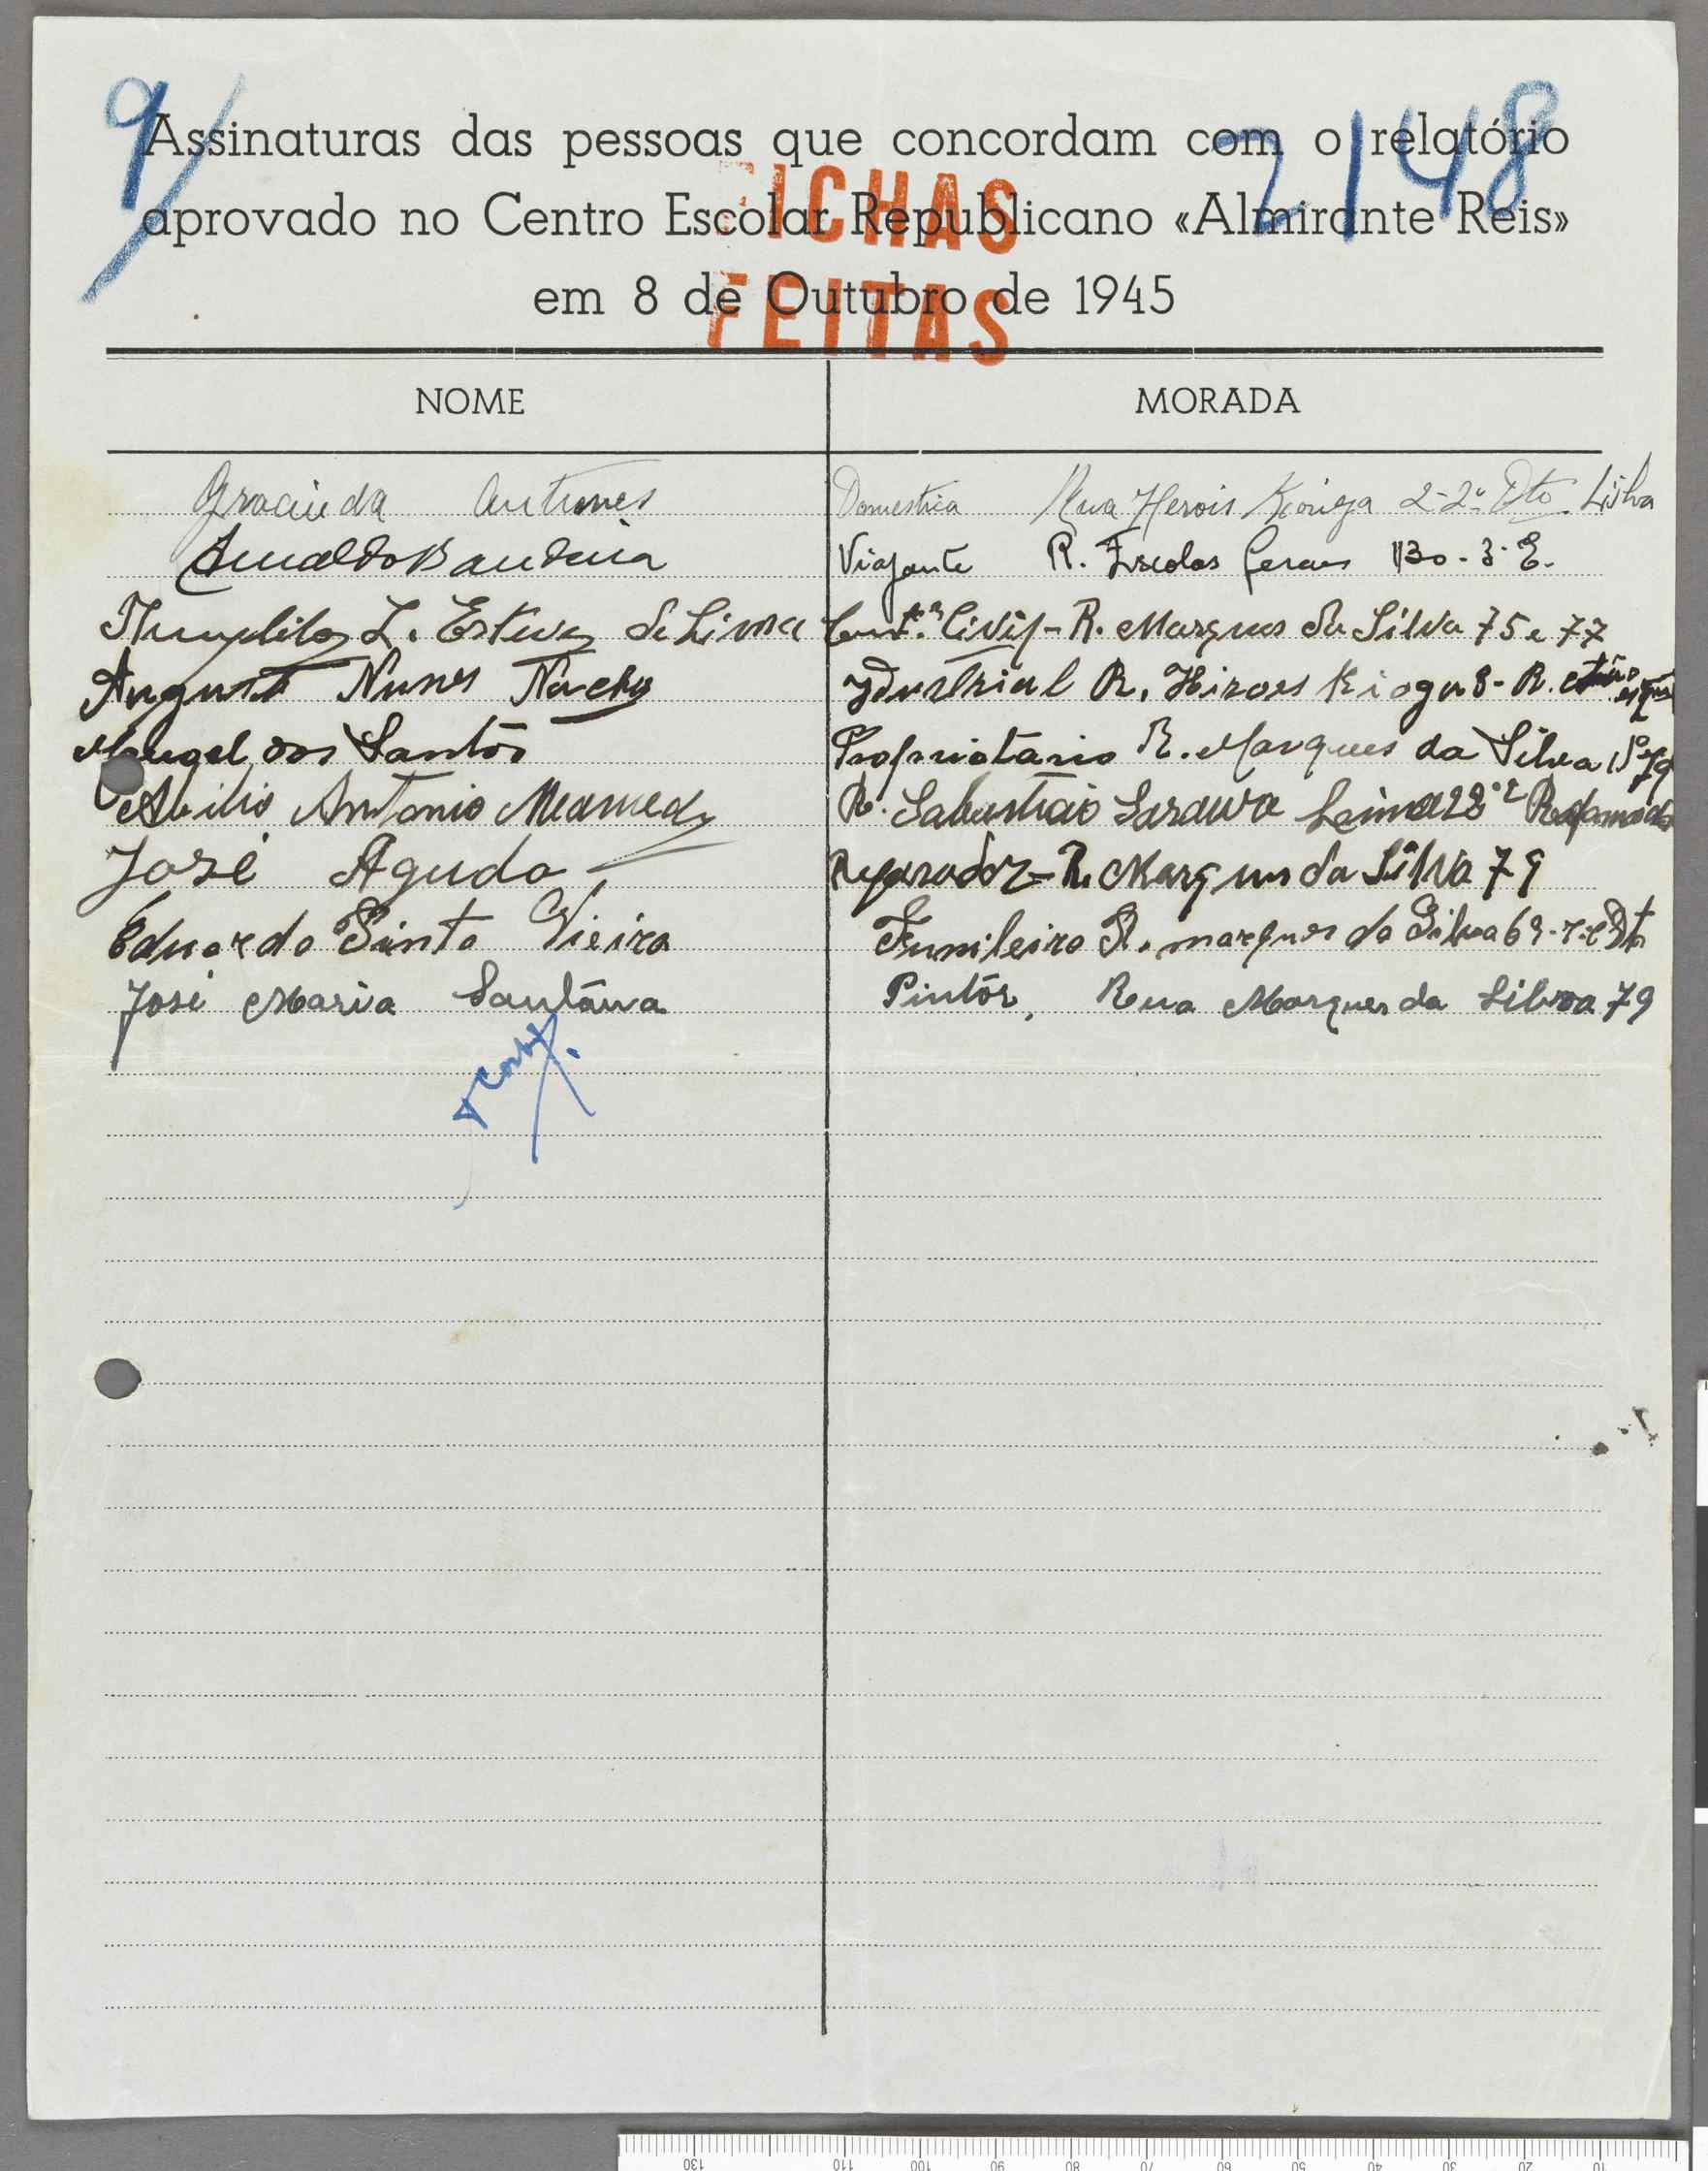 9/ 2148
Assinaturas das pessoas que concordam com o relatório
aprovado no Centro Escolar Republicano «Almirante Reis»
em 8 de Outubro de 1945
FICHAS
FEITAS
NOME MORADA
Antunes Domestica Rua Herois Kionga 2-2º Dto. Lisboa
Arnaldo Bandeira Viajante R. Escolas Gerais 130-3-E.
L. Esteves de Lima Const.or Civil - R. Marques da Silva 75 e 77
Nunes Idustrial R. Hiroes Kioga 8- R.
Manuel dos Santos Propriotario R. Marques da Silva 79
Abilio Antonio R. Sabastião Saraiva Lima 28
José Agudo R. Marques da Silva 79
Eduardo Pinto Vieira Funileiro R. marques da Silva 69-r-c Dto
José Maria Santâna Pintôr, Rua Marques da Silva 79